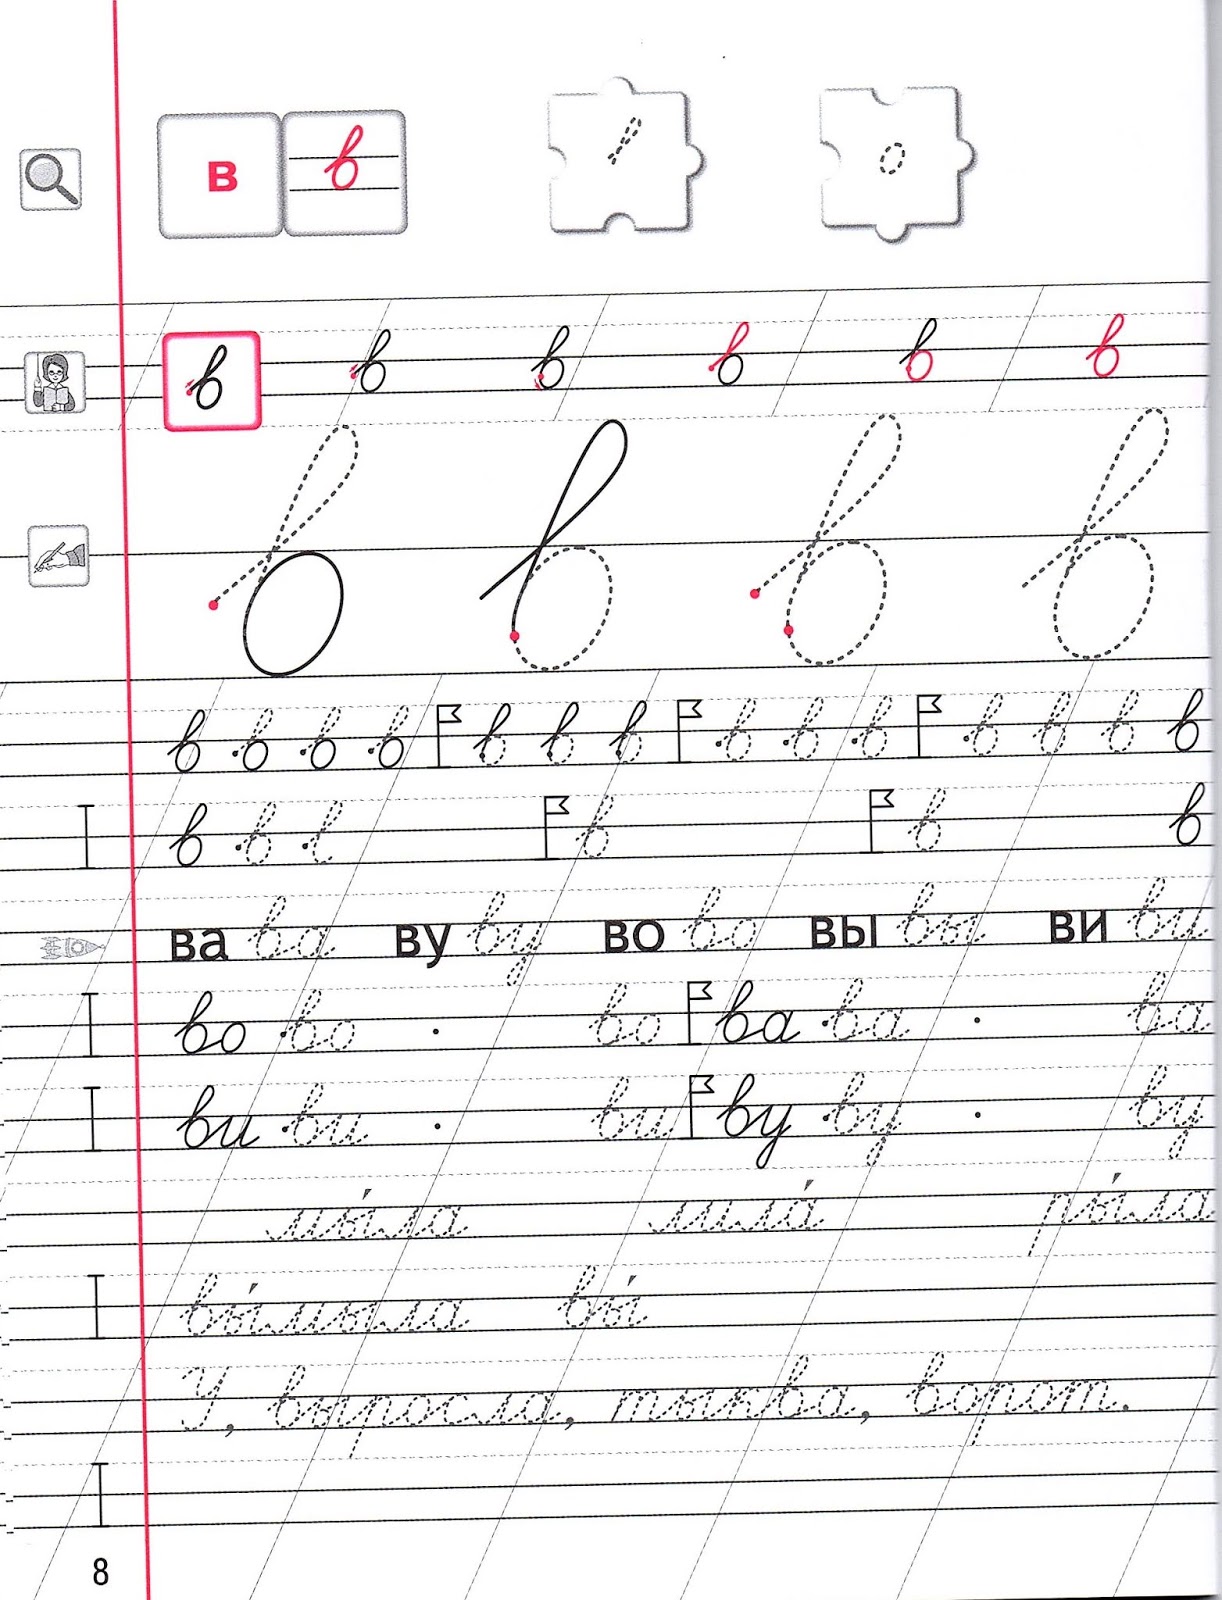 в в
в в в в в в
в в в в
в в в в в в в в в в в в в в
в в в в в
ва ва ву ву во во вы вы ви ви
во во во ва ва ва
ви ви ви ву ву ву
мы́ла мила́ ры́ла
вы́мыла вы́
У, выросла, тыква, ворот.
8